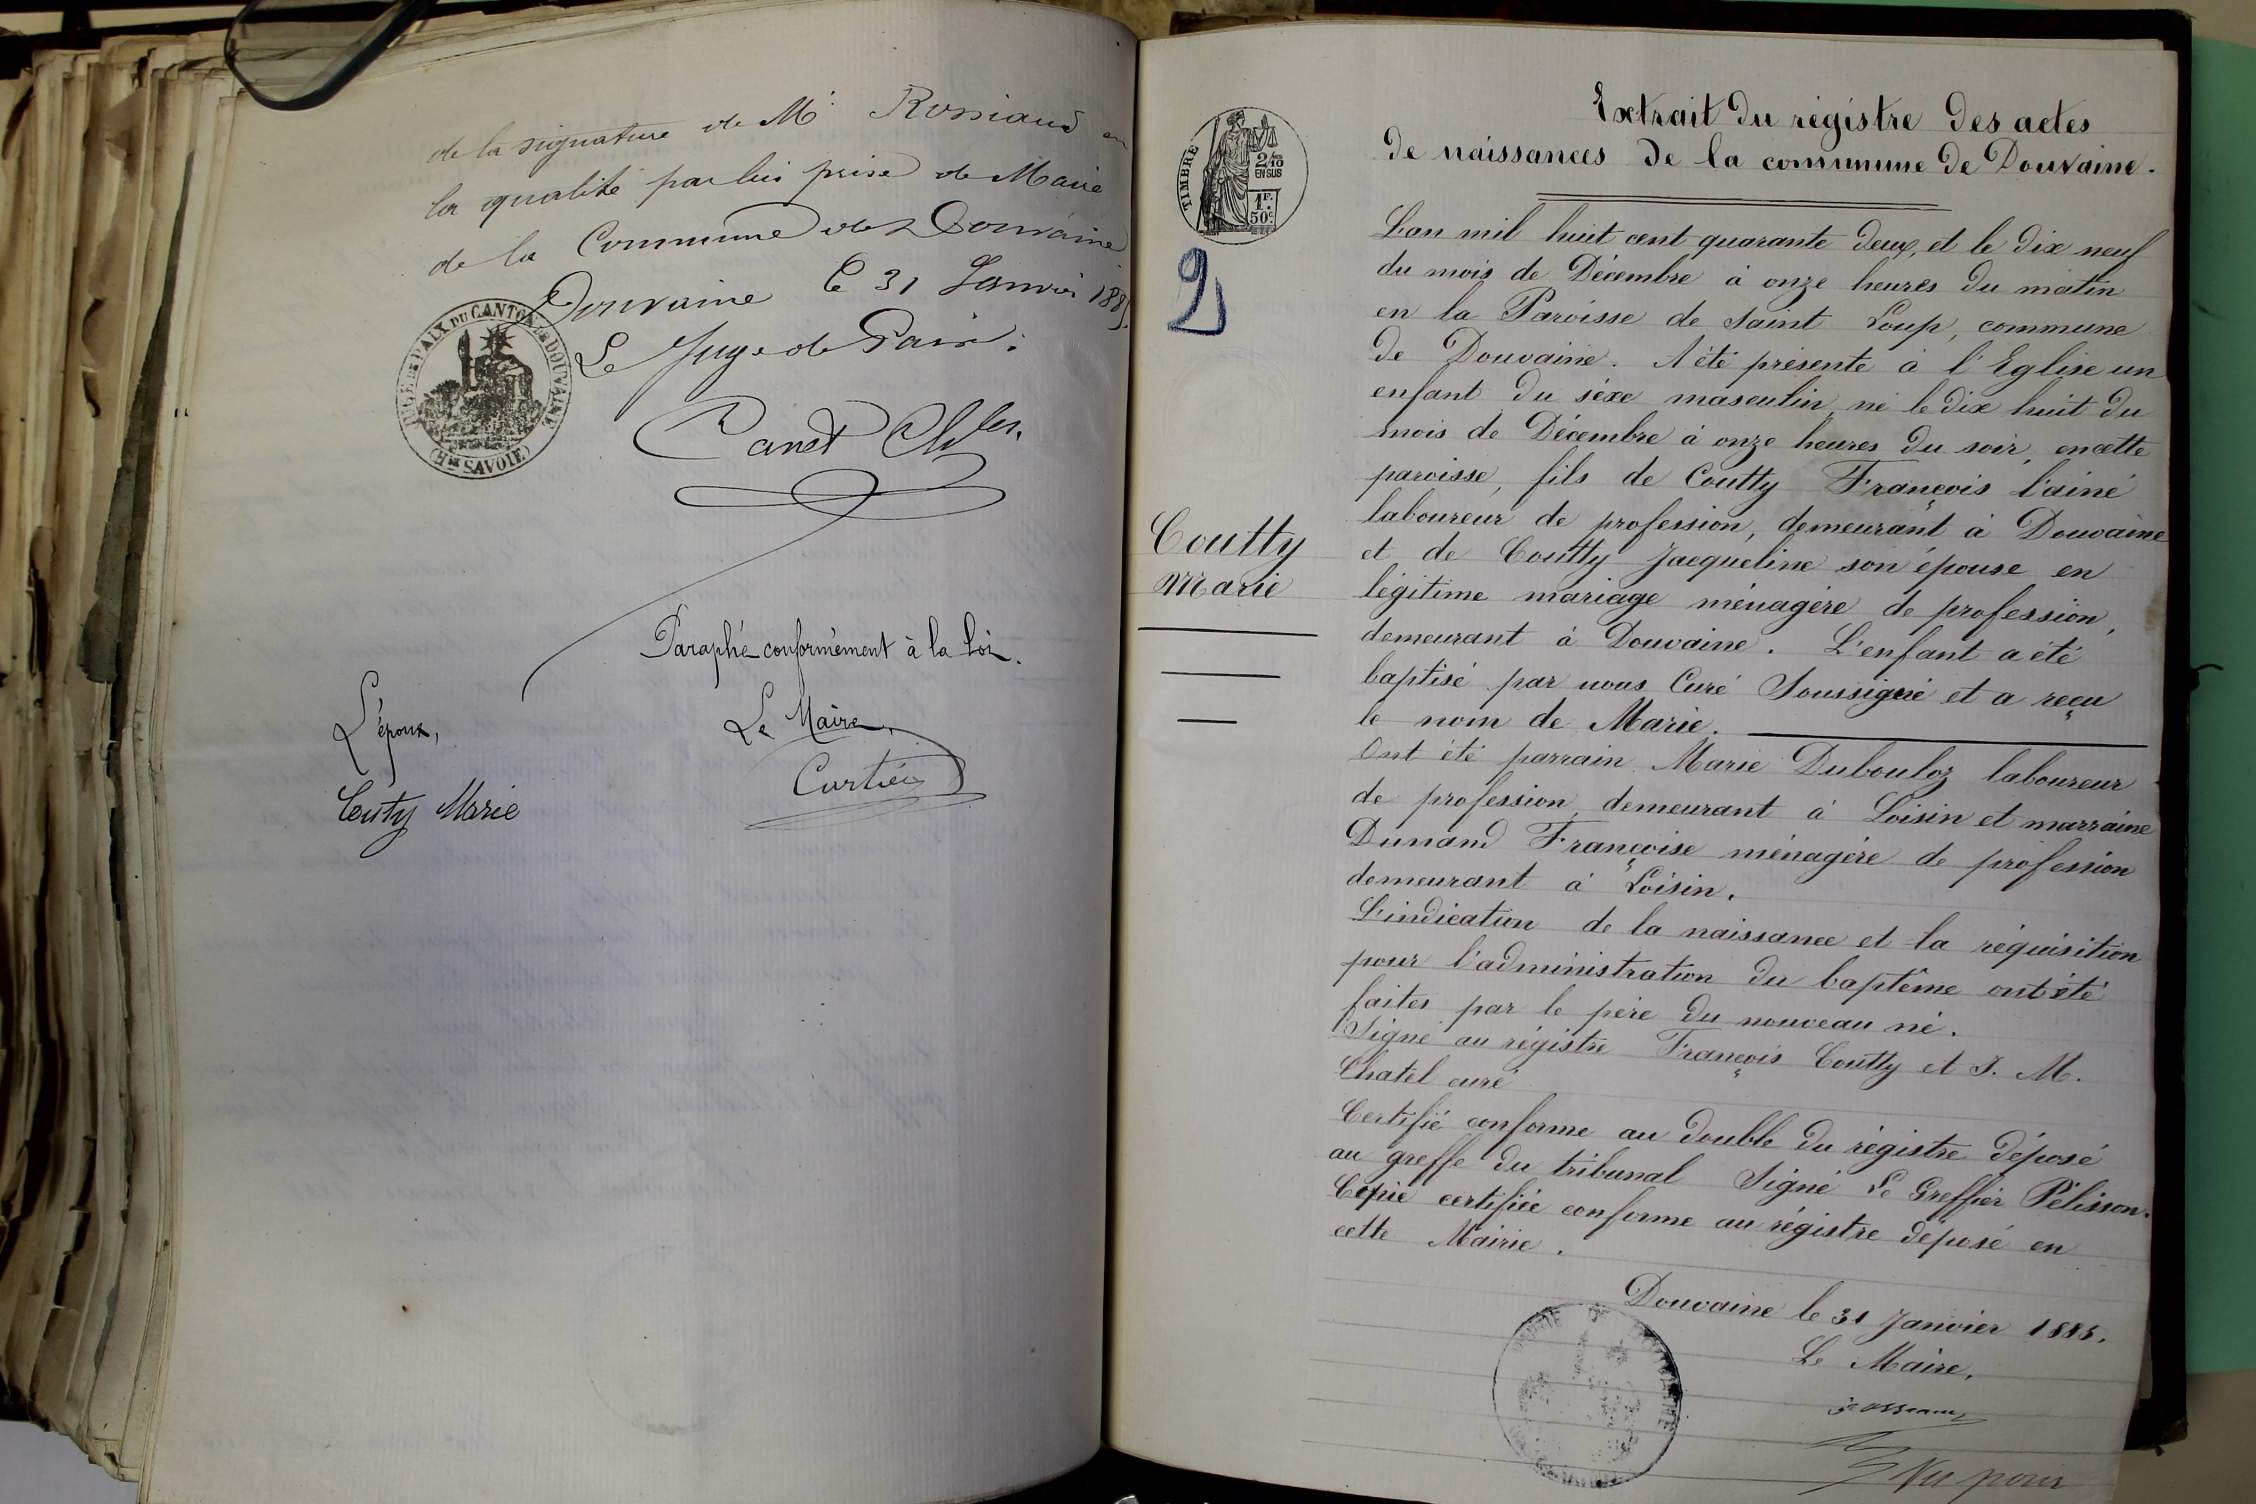 de la signature de Mr Rossiaud en
la qualité par lui prise de Maire
de la Commune de Douvaine
Douvaine le 31 Janvier 1885.
Le Juge de Paix.
JUGE DE PAIX DU CANTON DE DOUVAINE
(Hte SAVOIE)
Canet
Paraphé conformément à la Loi.
L'époux,
Le Maire,
Couty Marie
Curtié
TIMBRE
2/10 EN SUS
1F. 50c.
2
Coutty
Marie
Extrait du régistre des actes
de naissances de la commune de Douvaine.
L'an mil huit cent quarante deux, et le dix neuf
du mois de Décembre à onze heures du matin
en la Paroisse de Saint Loup, commune
de Douvaine. A été présenté à l'Eglise un
enfant du séxe masculin né le dix huit du
mois de Décembre à onze heures du soir, en cette
paroisse, fils de Coutty François l'ainé
laboureur de profession, demeurant à Douvaine
et de Coutty Jacqueline son épouse en
légitime mariage ménagère de profession,
demeurant à Douvaine. L'enfant a été
baptisé par nous Curé Soussigné et a reçu
le nom de Marie.
Ont été parrain Marie Dubouloz laboureur
de profession demeurant à Loisin et marraine
Dunand Françoise ménagère de profession
demeurant à Loisin.
L'indication de la naissance et la réquisition
pour l'administration du baptême ont été
faites par le père du nouveau né.
Signé au régistre François Coutty et J. M.
Chatel curé
Certifié conforme au double du régistre déposé
au greffe du tribunal Signé Le Greffier Pélisson.
Copie certifiée conforme au régistre déposé en
cette Mairie.
Douvaine le 31 Janvier 1885.
Le Maire,
MAIRIE DE DOUVAINE
Vu pour